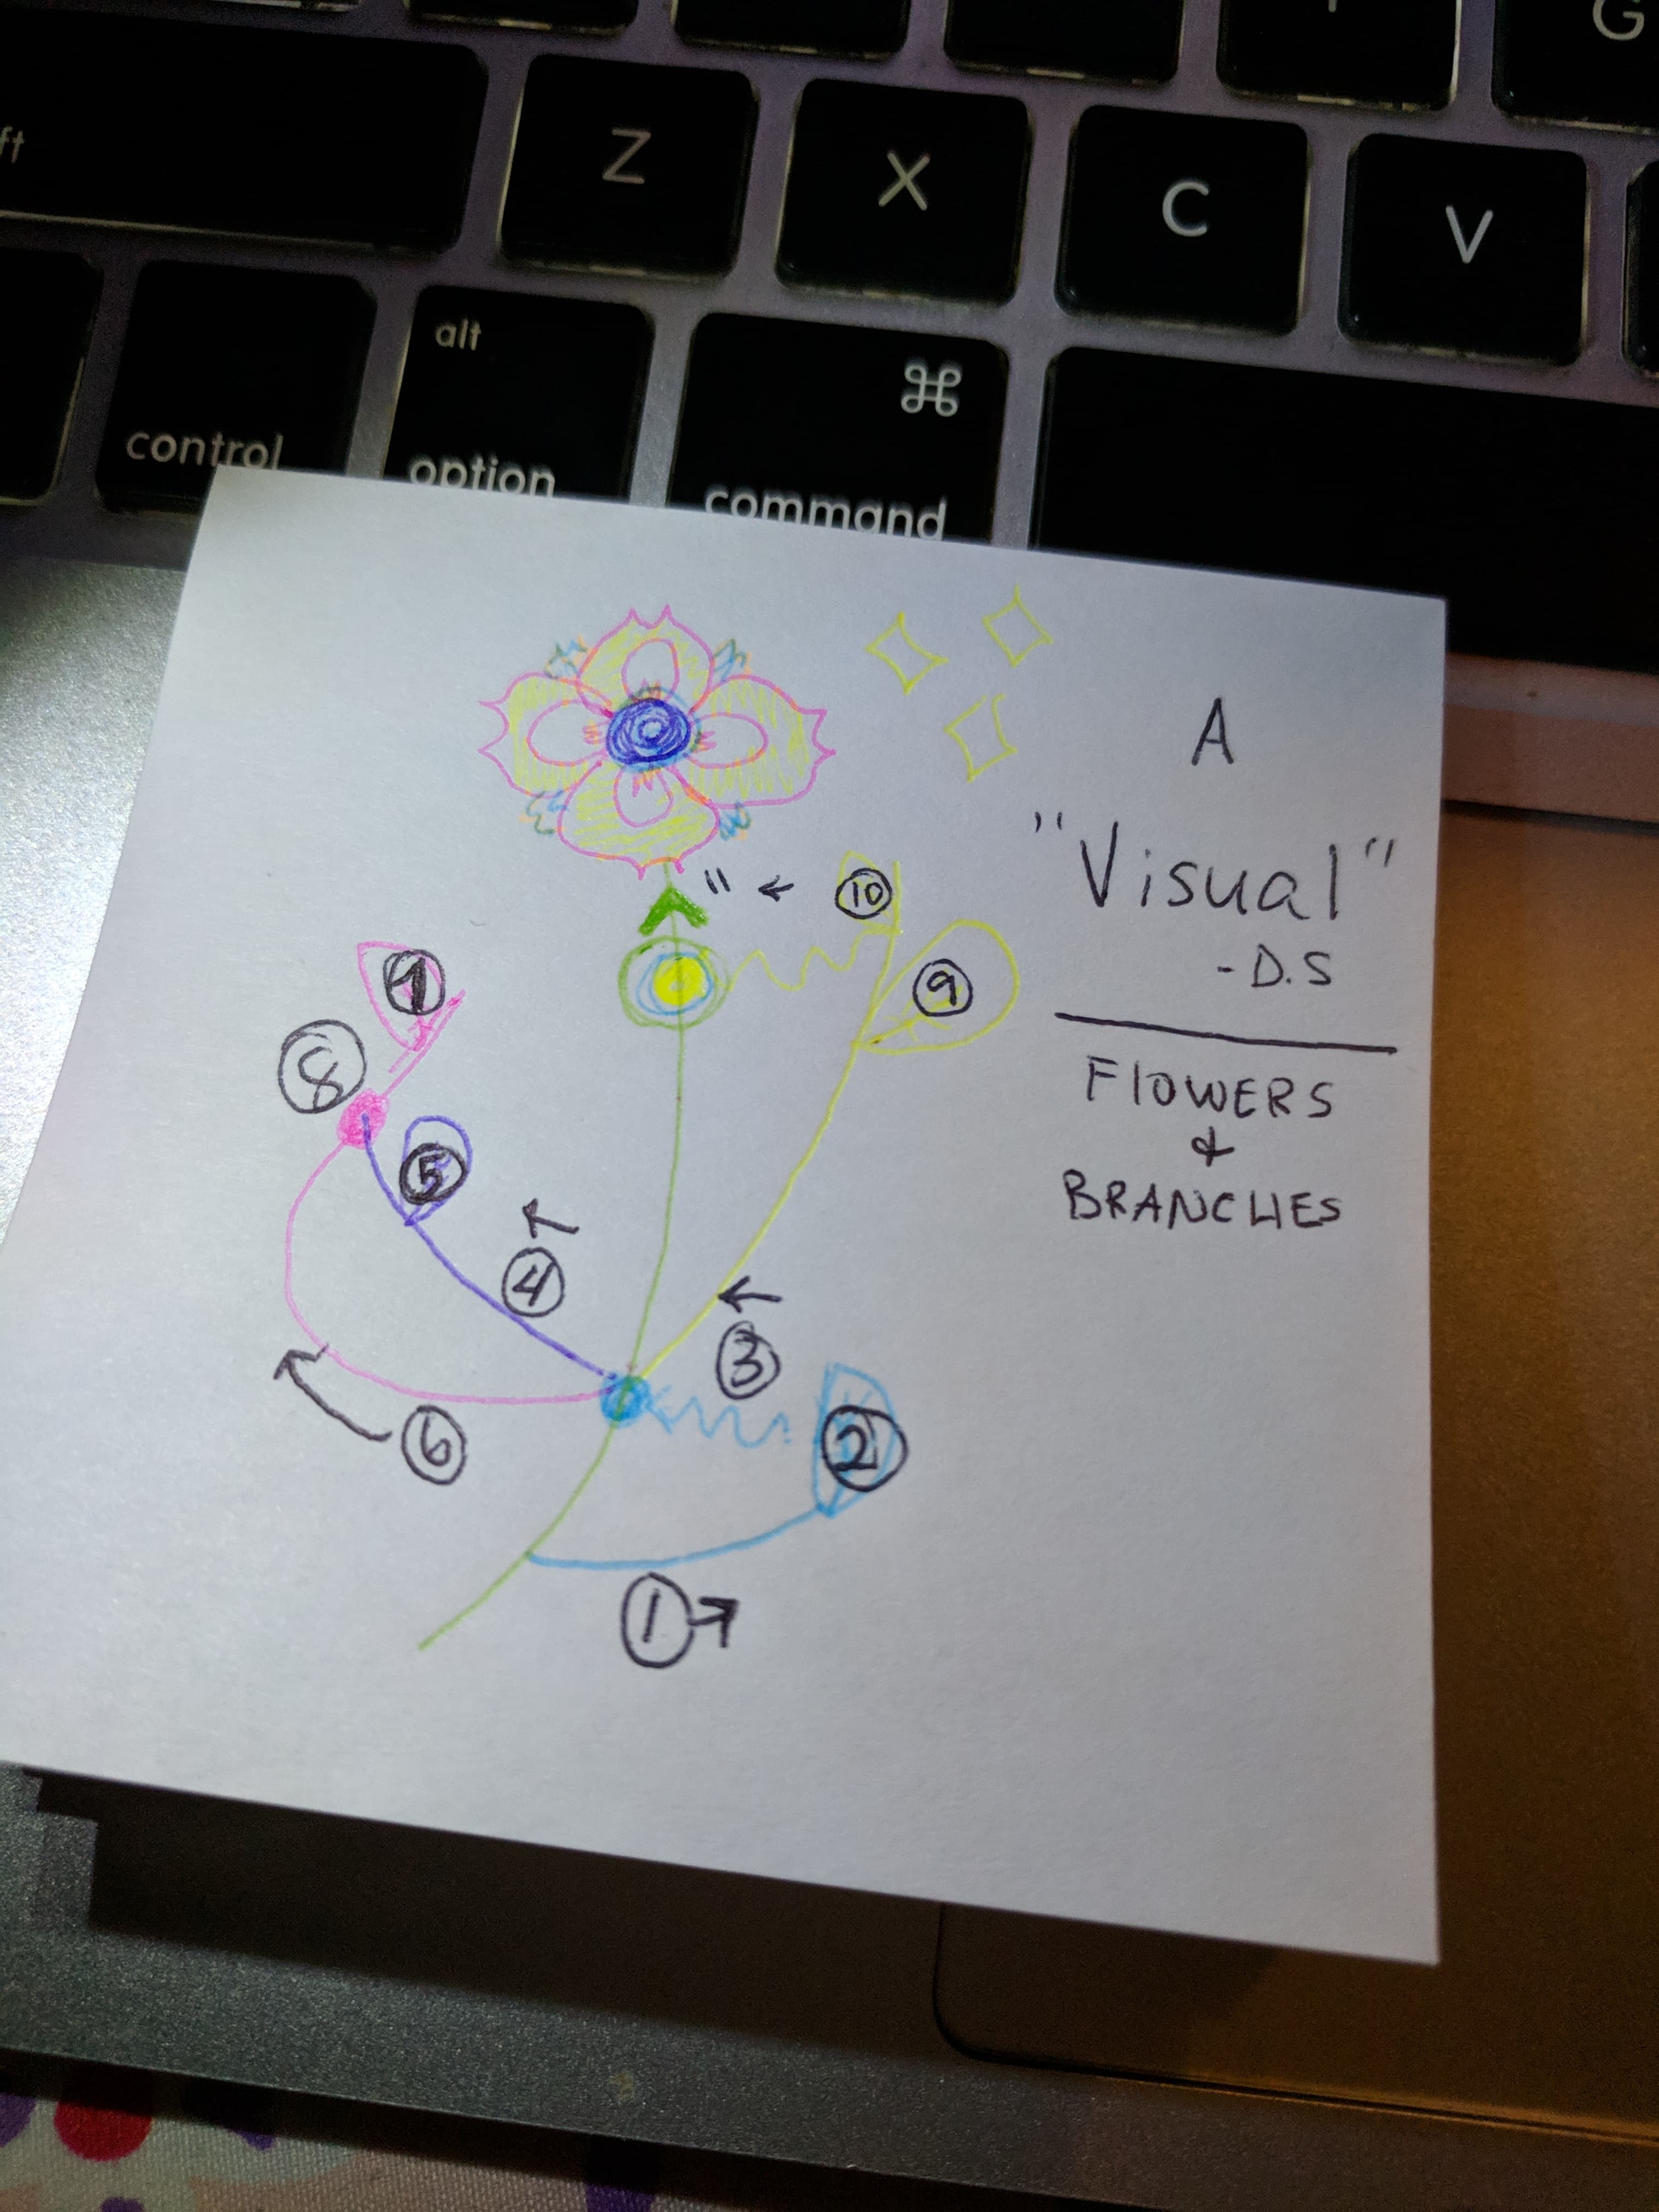 G
ft
Z
X
C
V
alt
⌘
control
option
command
A
"Visual"
-D.S
FlOWERS
&
BRANCHES
" ← 10
9
8
5
4
3
6
2
1 →